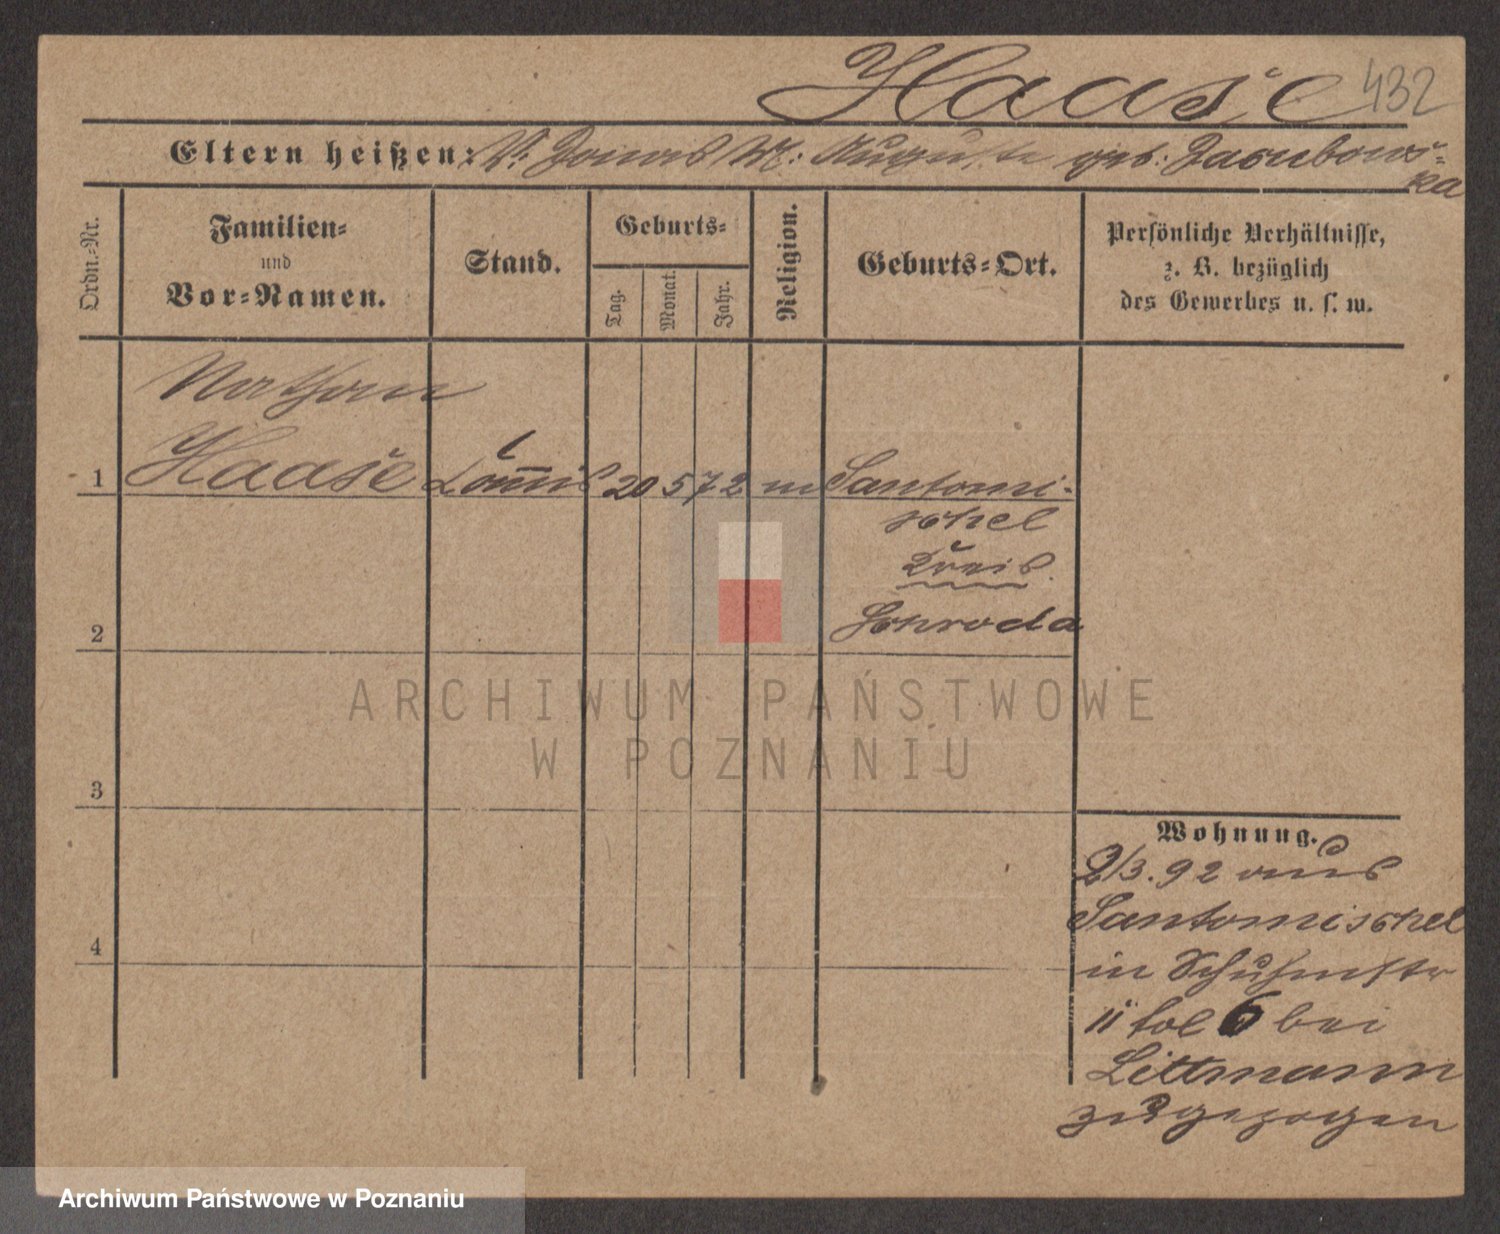 Haase 432
Eltern heißen: V: Jonas M: Auguste geb: Jacubows-
ka
Ordn.-Nr.
Familien-
und
Vor-Namen.
Stand.
Geburts-
Tag.
Monat.
Jahr.
Religion.
Geburts-Ort.
Persönliche Verhältnisse,
z. B. bezüglich
des Gewerbes u. s. w.
Nathan
1 Haase Com̅is 20 5 72 m Santomi-
schel
Kreis
2 Schroda
3
4
Wohnung.
2/3. 92 aus
Santomischel
in Schuhmstr
6 bei
Littmann
zugezogen
ARCHIWUM PAŃSTWOWE
W POZNANIU
Archiwum Państwowe w Poznaniu